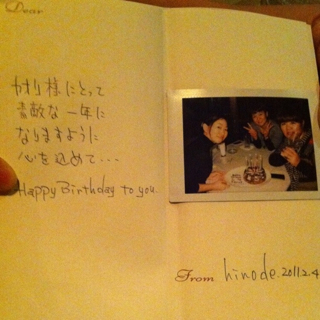 Dear
カオリ様にとって
素敵な一年に
なりますように
心を込めて...
Happy Birthday to you
From hinode. 2011.2.4